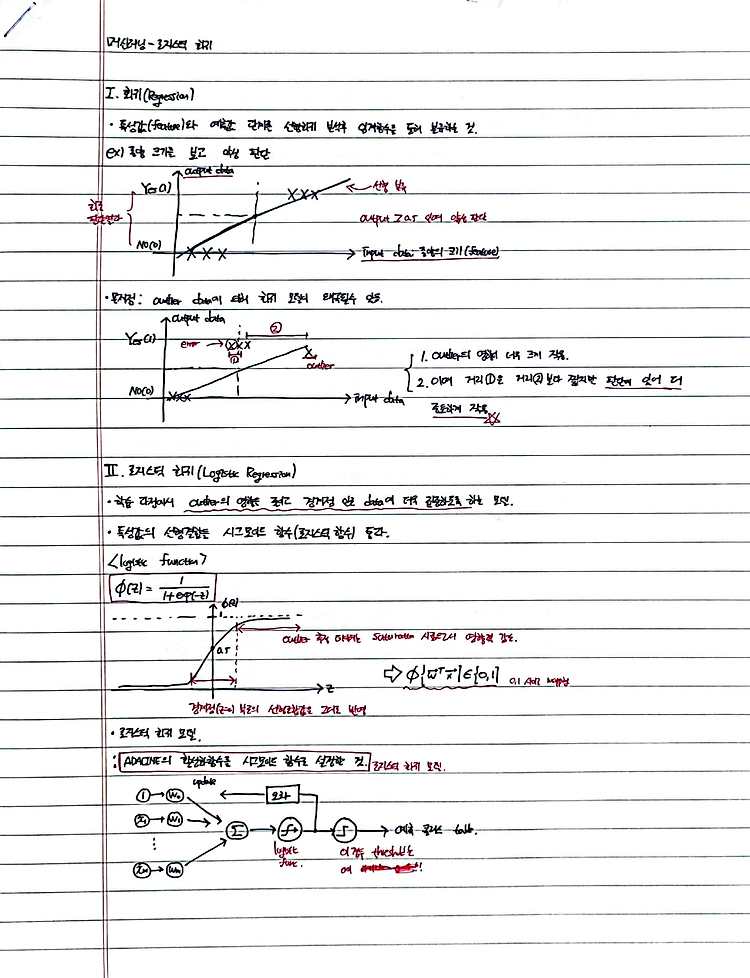 머신러닝 - 로지스틱 회귀
I. 회귀(Regression)
· 특성값(feature)과 예측값 관계를 선형회귀 분석후 임계함수를 통해 분류하는 것.
ex) 종양 크기를 보고 악성 판단
output data
Yes(1)
선형 분류
회귀
output ≥ 0.5 이면 악성 판단
No(0)
Input data: 종양의 크기(feature)
· 문제점: outlier data에 의해 회귀 모델이 왜곡될수 있다.
output data
②
Yes(1)
error
①
outlier
1. outlier의 영향이 너무 크게 작용.
2. 이때 거리①은 거리②보다 짧지만 판단에 있어 더
중요하게 작용
No(0)
Input data
II. 로지스틱 회귀(Logistic Regression)
· 학습 과정에서 outlier의 영향은 줄이고 경계점 인근 data에 더욱 집중하도록 하는 모델.
· 특성값의 선형결합을 시그모이드 함수(로지스틱 함수) 통과.
<logistic function>
ϕ(z) = 1 / 1+exp(-z)
ϕ(z)
1
outlier 쪽의 saturation 시킴으로서 영향력 감소.
0.5
⇨ ϕ{w^T x} ∈ {0,1} 0,1 사이
z
경계점(z=0) 부근의 선형결합값은 그대로 반영
· 로지스틱 회귀 모델.
: ADALINE의 활성화함수를 시그모이드 함수로 설정한 것. 로지스틱 회귀 모델.
update
오차
1 → w₀
x₁ → w₁
⋮
xₘ → wₘ
Σ
예측 클래스 label.
logistic func.
이경우 threshold는